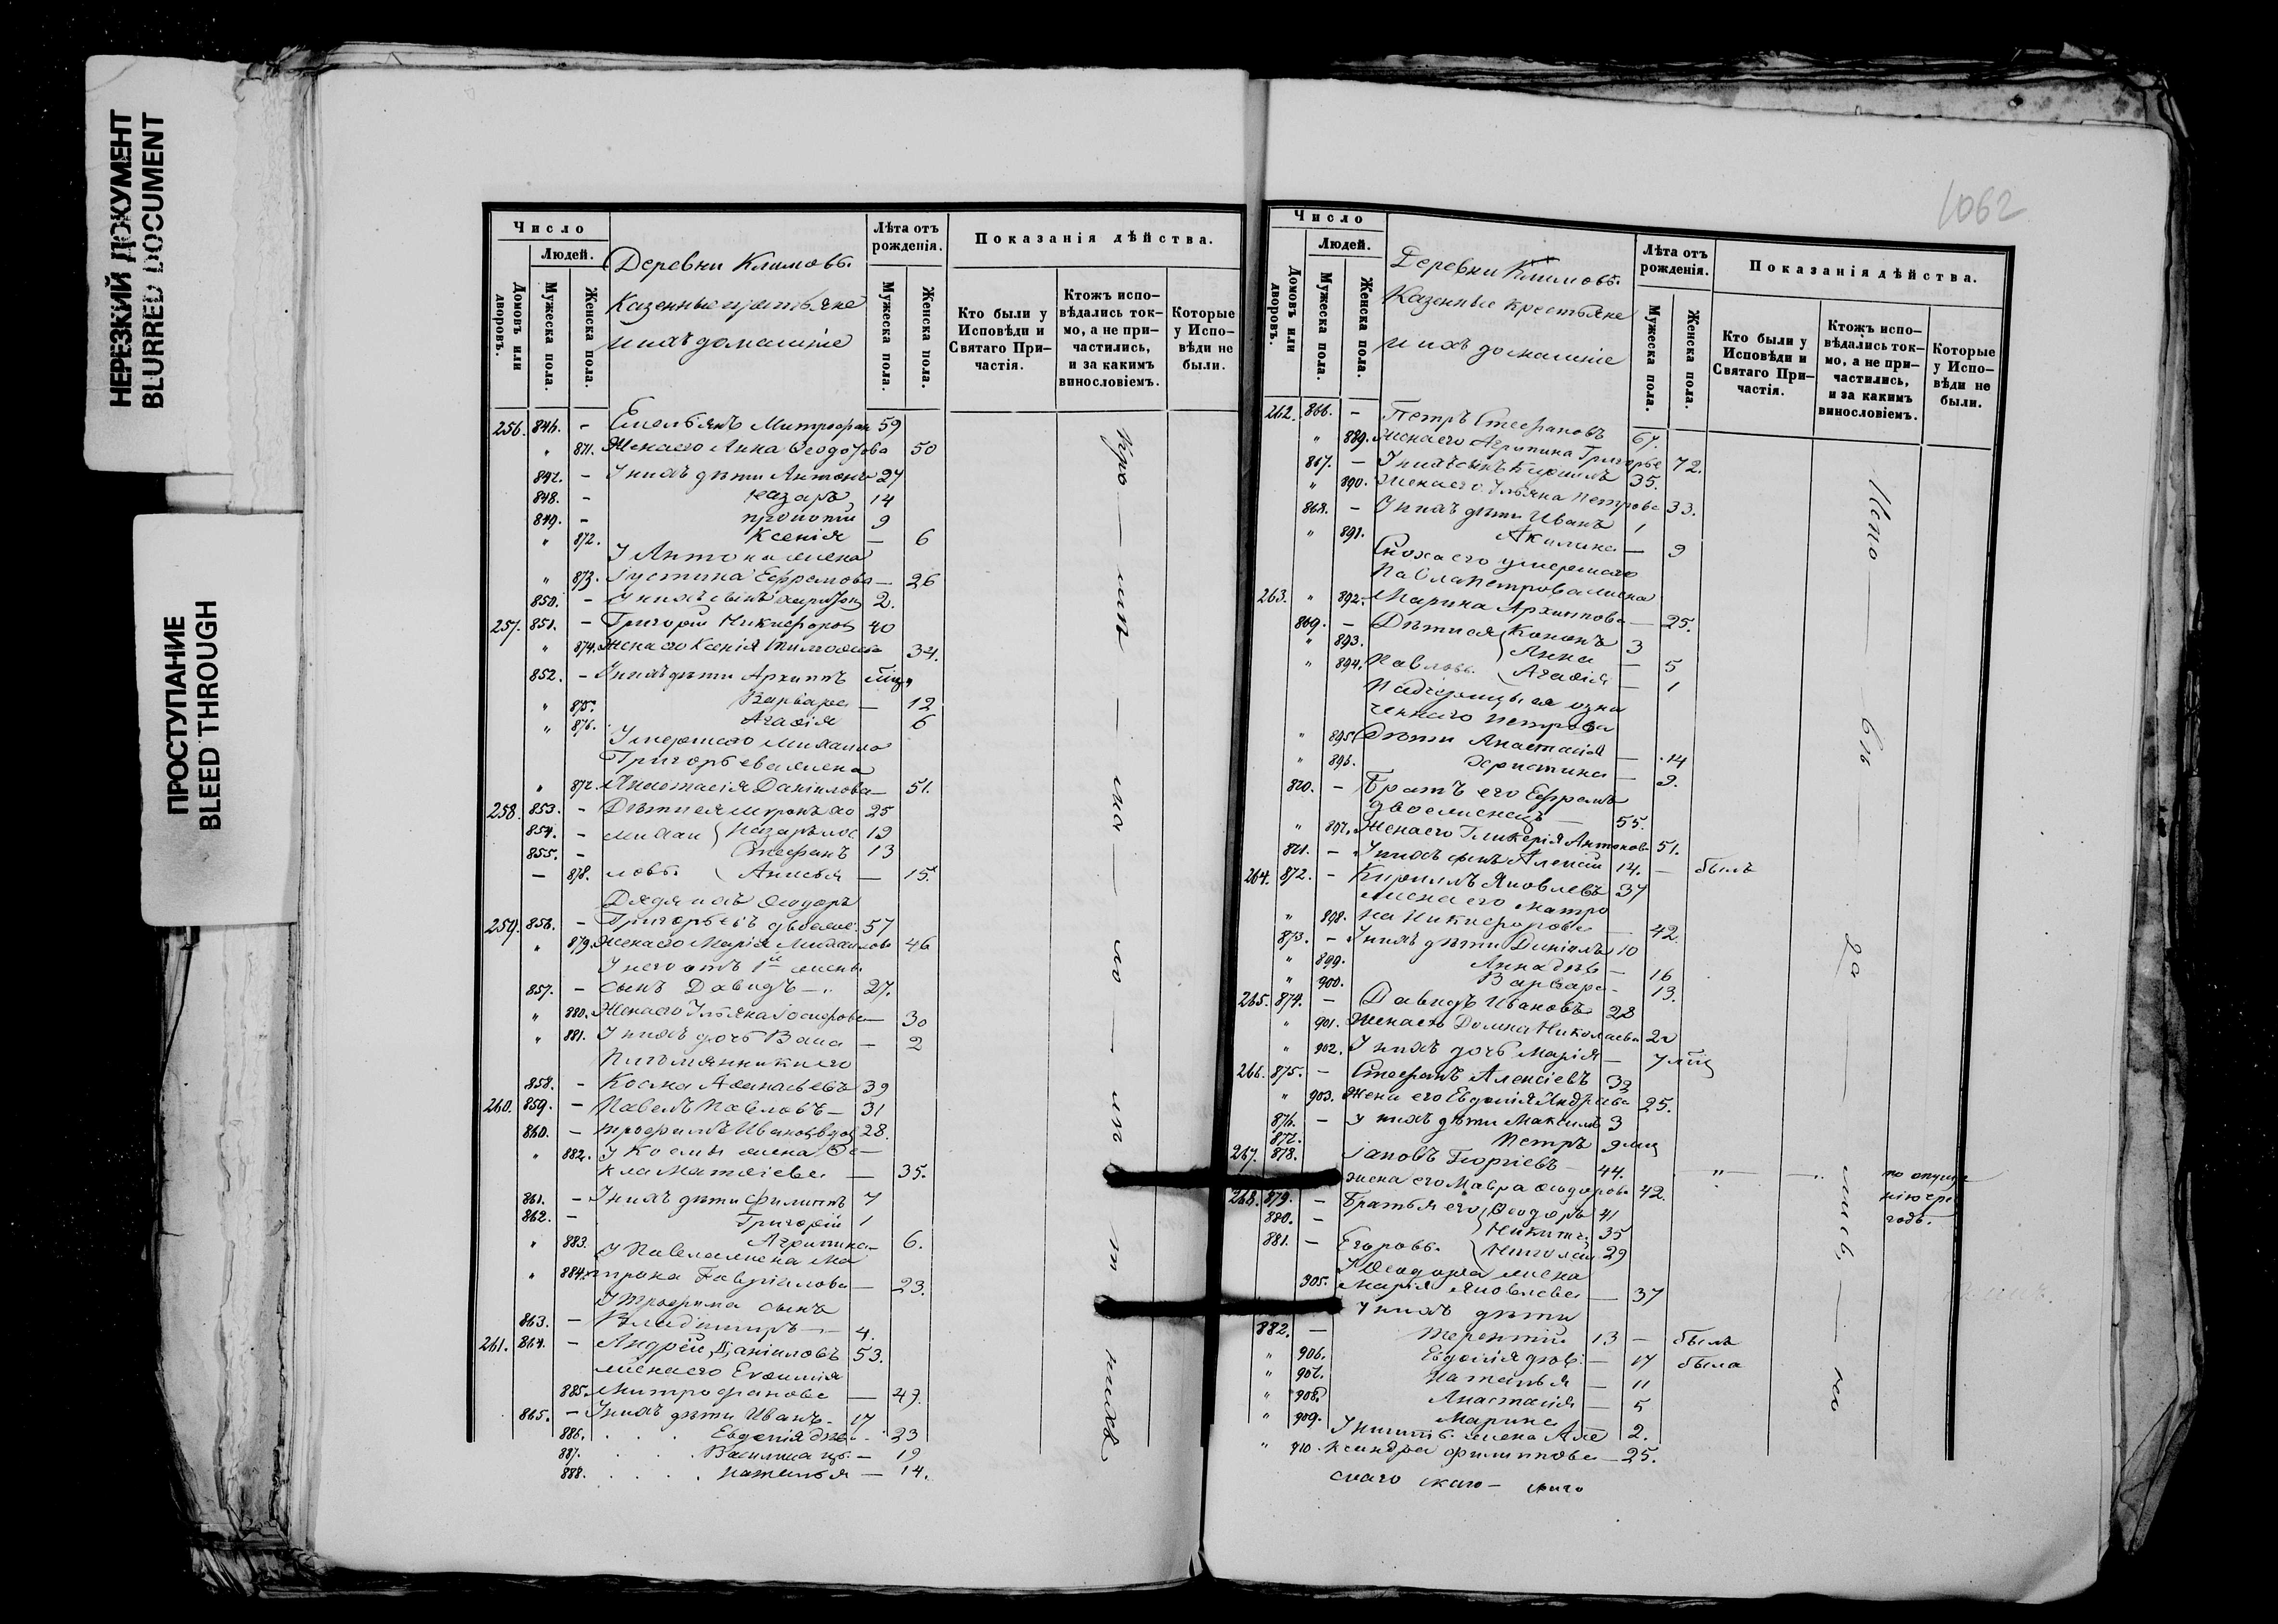 НЕРЕЗКИЙ ДОКУМЕНТ
BLURRED DOCUMENT
ПРОСТУПАНИЕ
BLEED THROUGH
Число
Людей.
Домовъ или дворовъ.
Мужеска пола.
Женска пола.
Деревни Климовъ.
Казенные крестьяне
и ихъ домашніе
Лѣта отъ рожденія.
Мужеска пола.
Женска пола.
Показанія дѣйства.
Кто были у Исповѣди и Святаго При-частія.
Ктожъ испо-вѣдались ток-мо, а не при-частились, и за какимъ винословіемъ.
Которые у Испо-вѣди не были.
256. 846. - Емельянъ Митрофан 59
" 871. Жена его Анна Ѳеодо 50
847. - У нихъ дѣти Антонъ 27
848. - Назаръ 14
849. - 9
" 872. Ксенія — 6
У Антона жена
" 873. Іустина Ефремова — 26
850. - У нихъ сынъ 2.
257. 851. - Григорій Никифоровъ 40
" 874. Жена его Ксенія 34.
852. - У нихъ дѣти Архиппъ
" 875. Варвара — 12
" 876. Агафія 6
Умершаго Михаила
Григорьева жена
" 877. Анастасія Даніилова — 51.
258. 853. - Дѣти ея 25
854. - Михаи Назаръ 19
855. - Стефанъ 13
— 878. ловы. Анисья — 15.
Дядя ихъ Ѳеодоръ
259. 856. - Григорьевъ двоеже. 57
" 879. Жена его Марія Михаилова 46
У него отъ 1й жены
857. - сынъ Давидъ — 27.
" 880. Жена его Ульяна Іосифова — 30
" 881. У нихъ дочь Васса — 2
Племянники его
858. - Косма Аѳанасьевъ 39
260. 859. - Павелъ Павловъ — 31
860. - Трофимъ Ивановъ вдов 28.
" 882. У Космы жена Ѳе-
кла Матѳіева — 35.
861. - У нихъ дѣти Филиппъ 7
862. - Григорій 1
" 883. Агрипина — 6.
У Павла жена Ма
" 884. трона Гавріилова — 23.
У Трофима сынъ
863. - Владиміръ — 4.
261. 864. - Андрей Даніиловъ 53.
жена его Евѳимія
885. Митрофанова — 47.
865. - У нихъ дѣти Иванъ - 17
886. Евдокія дѣв. - 23
887. Василиса 19
888. Наталья — 14.
1062
Число
Людей.
Домовъ или дворовъ.
Мужеска пола.
Женска пола.
Деревни Климовъ.
Казенные крестьяне
и ихъ домашніе
Лѣта отъ рожденія.
Мужеска пола.
Женска пола.
Показанія дѣйства.
Кто были у Исповѣди и Святаго При-частія.
Ктожъ испо-вѣдались ток-мо, а не при-частились, и за какимъ винословіемъ.
Которые у Испо-вѣди не были.
262. 866. - Петръ Стефановъ 67.
" 889. Жена его Агрипина Григорье 72.
867. - У нихъ сынъ Кириллъ 35.
" 890. Жена его Ульяна Петрова 33.
868. - У нихъ дѣти Иванъ 1
" 891. Акилина — 9
Сноха его умершаго
Павла Петрова жена
263. " 892. Марина Архиппова — 25.
869. - Дѣти ея Кононъ 3
" 893. Анна — 5
" 894. Павловы. Агафія — 1
Падчерицы ея озна
ченнаго Петрова
" 895. Дѣти Анастасія — 14
" 896. Христина — 9.
870. - Братъ его Ефремъ
двоеженецъ — 55.
" 897. Жена его Гликерія Антонов 51.
871. - У нихъ сынъ Алексій 14. — былъ
264. 872. - Кириллъ Яковлевъ 37
жена его Матро
" 898. на Никифорова — 42.
873. - У нихъ дѣти Даніилъ 10
" 899. Анна дѣв — 16
" 900. Варвара — 13.
265. 874. - Давидъ Ивановъ 28
" 901. Жена его Домна Николаева 22
" 902. У нихъ дочь Марія — 7 мѣц
266. 875. - Стефанъ Алексіевъ 32
" 903. Жена его Евдокія Андреева 25.
876. - У нихъ дѣти Максимъ 3
877. Петръ 9 мц
267. 878. Іаковъ Георгіевъ 44. по опуще
жена его Мавра Ѳеодорова 42. нію чрез
268. 879. - Братья его Ѳеодоръ 41 годъ.
880. - Никита. 35
881. - Егоровы. Николай 29
У Ѳеодора жена
905. Марія Яковлева — 37
У нихъ дѣти
882. — Терентій 13 — былъ
" 906. Евдокія дѣв. — 17 была
" 907. Наталья — 11
" 908. Анастасія — 5
" 909. Марина 2.
У Никит. жена Але
" 910. ксандра Филиппова — 25.